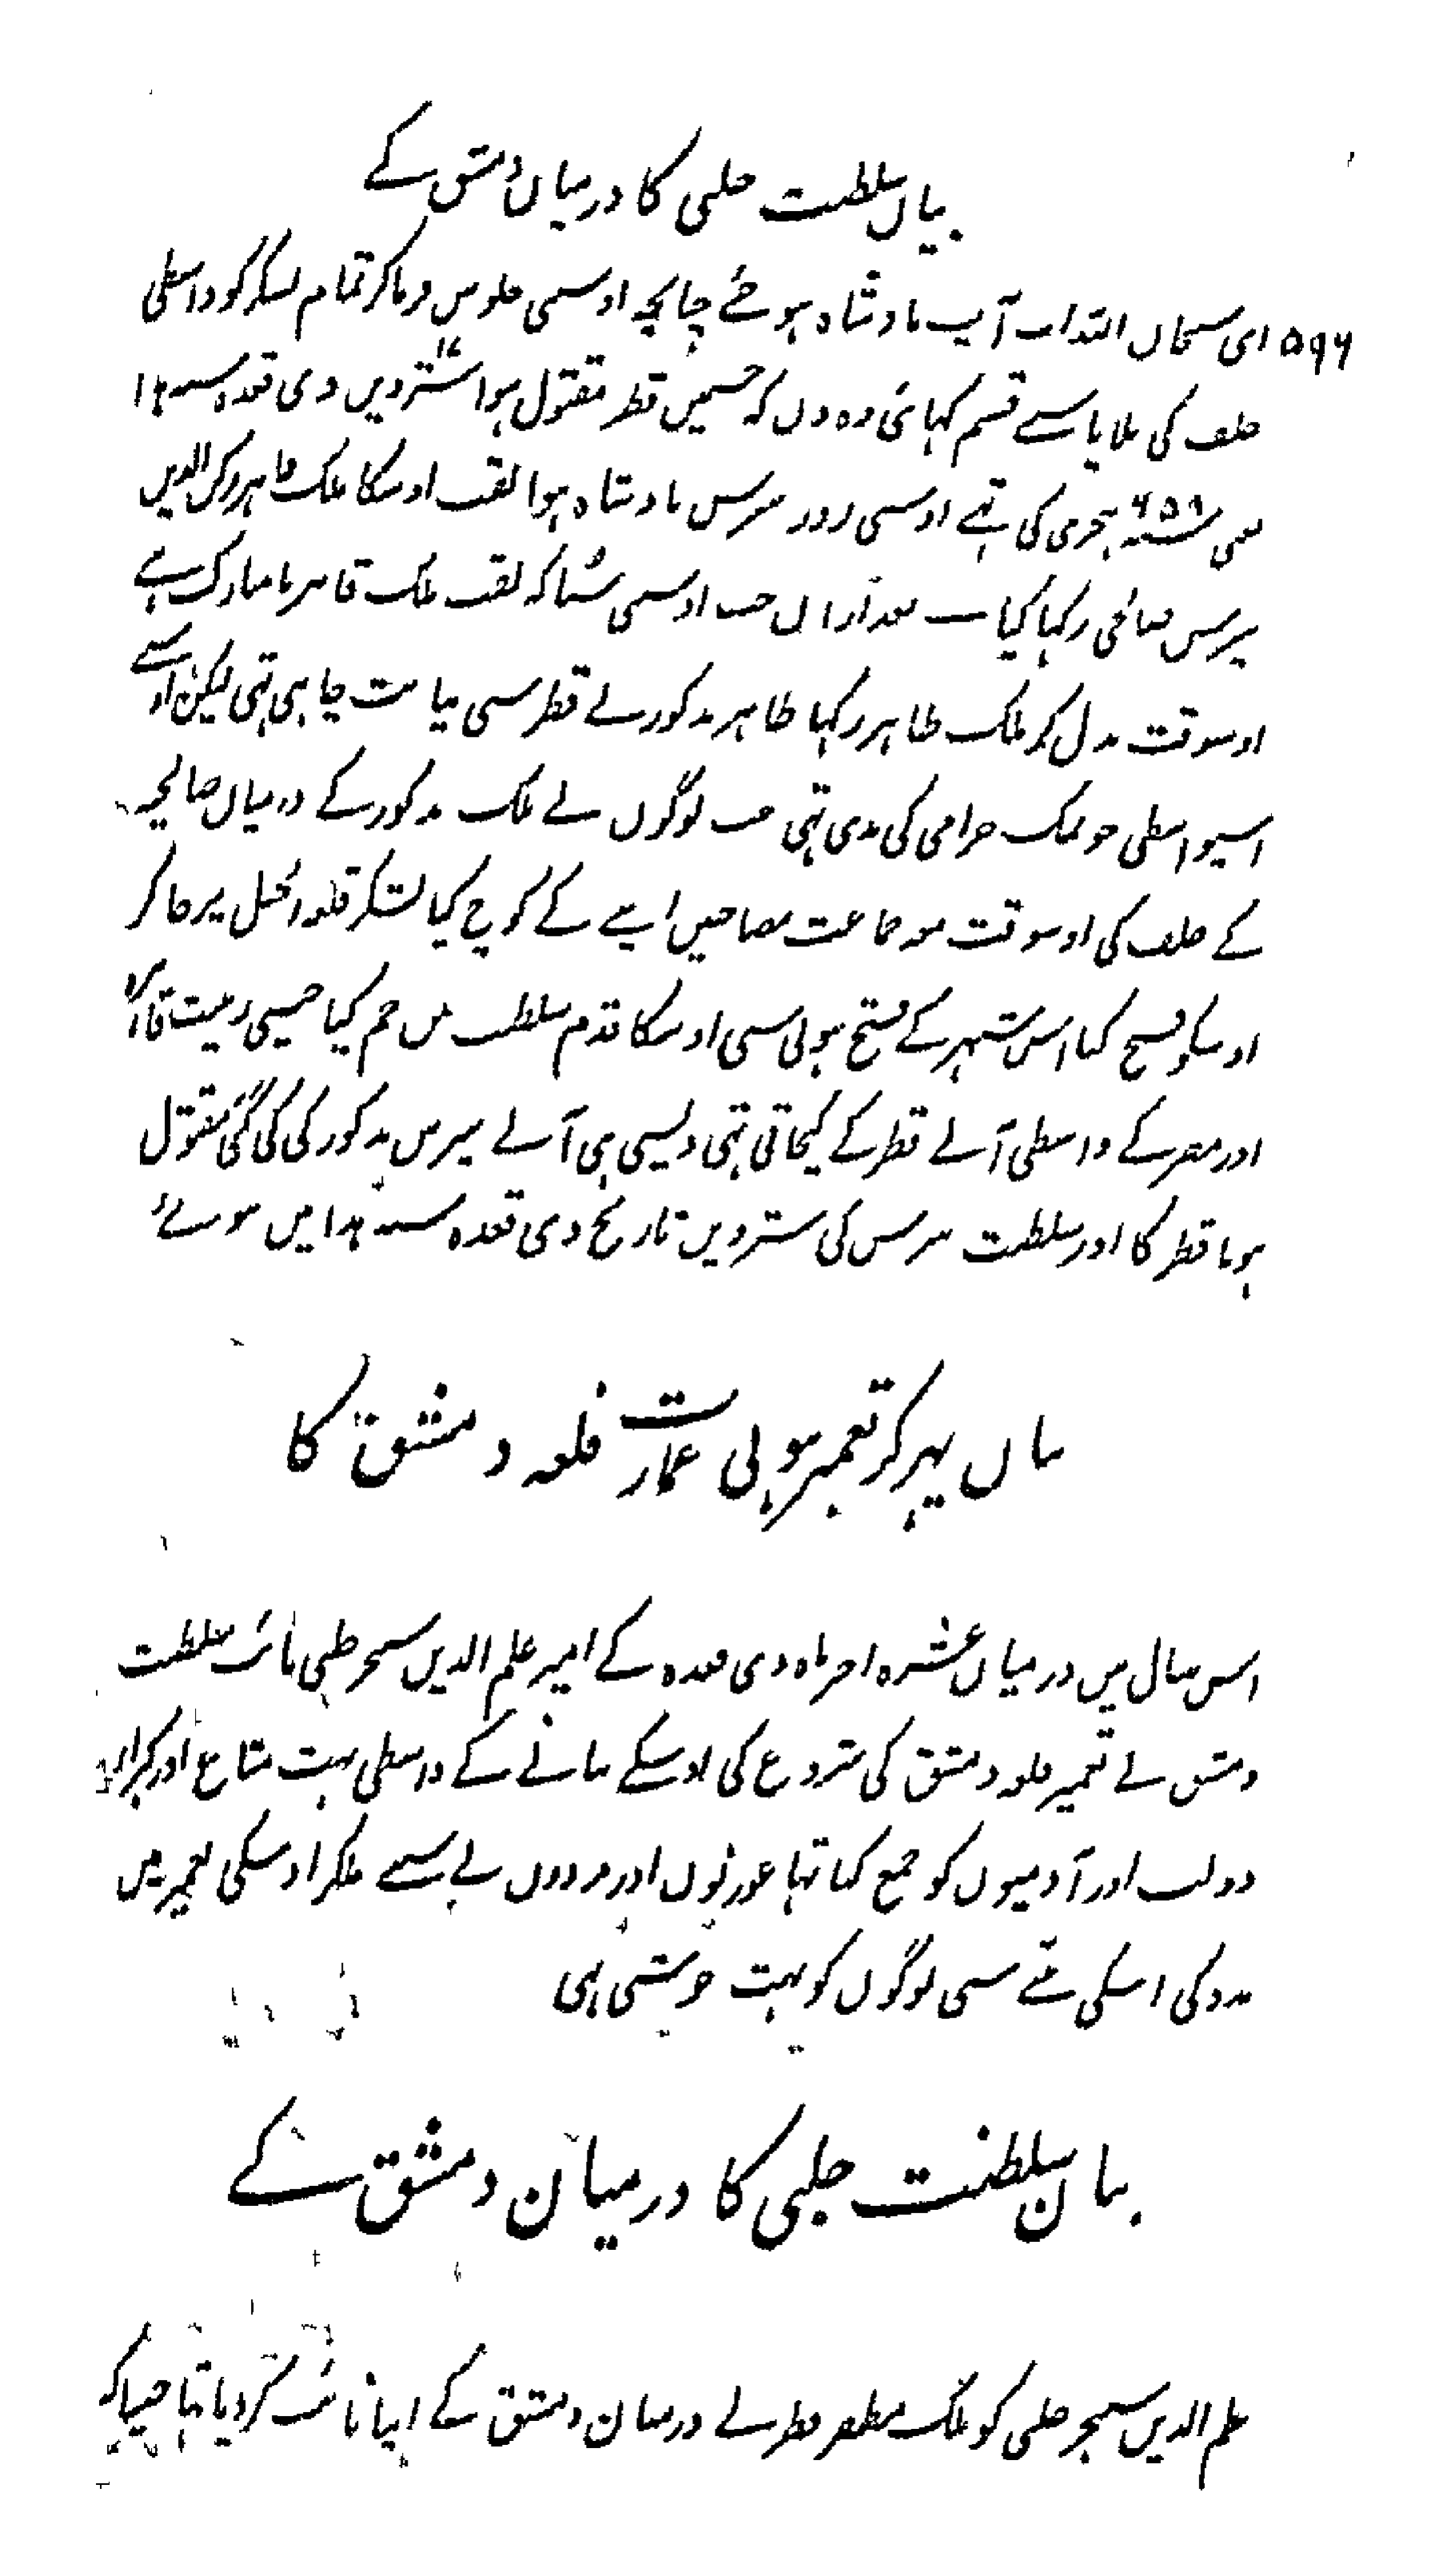 بیان سلطنت حلبی کا درمیان دمشق کے
۵۹۶
ای سبحان اللہ اب آپ بادشاہ ہوئے چنانچہ اوسمی جلوس فرماکر تمام لشکر کو واسطی
حلف کی بلایا سبے قسم کہائی وہ دن کہ جسمیں قطز مقتول ہوا سترویں ۱۷ ذی قعدہ سنہ ہذا
یعنی سنہ ۶۵۸ ہجری کی تہے اوسی روز بیبرس بادشاہ ہوا لقب اوسکا ملک قاہر رکن الدین
بیبرس صالحی رکہا گیا بعد ازاں جب اوسمی سنا کہ لقب ملک قاہر نا مبارک ہے
اوسوقت بدل کر ملک ظاہر رکہا ظاہر مذکور نے قطز سی نیابت چاہی تہی لیکن اوسنے
اسیواسطی جو نمک حرامی کی بدی تہی جب لوگوں نے ملک مذکور کے درمیان صالحیہ
کے حلف کی اوسوقت مع جماعت مصاحبین اپنے کے کوچ کیا لشکر قلعہ الجبل پر جاکر
اوسکو فتح کیا اس شہر کے فتح ہونی سی اوسکا قدم سلطنت میں جم گیا جیسی زینت قاہرہ
اور مصر کے واسطی آنے قطز کے کیجاتی تہی ویسی ہی آنے بیبرس مذکور کی کی گئی مقتول
ہونا قطز کا اور سلطنت بیبرس کی سترویں تاریخ ذی قعدہ سنہ ہذا میں ہوئے
بیان پہر کر تعمیر ہونی عمارت قلعہ دمشق کا
اس سال میں درمیان عشرہ اخر ماہ ذی قعدہ کے امیر علم الدین سنجر حلبی نائب سلطنت
دمشق نے تعمیر قلعہ دمشق کی شروع کی اوسکے بنانے کے واسطی بہت متاع اور کبراے
دولت اور آدمیوں کو جمع کیا تہا عورتوں اور مردوں نے سبے ملکر اوسکی تعمیر میں
مدد کی اسکی بننے سی لوگوں کو بہت خوشی ہی
بیان سلطنت حلبی کا درمیان دمشق کے
علم الدین سنجر حلبی کو ملک مظفر قطز نے درمیان دمشق کے اپنا نائب کر دیا تہا جیسا کہ